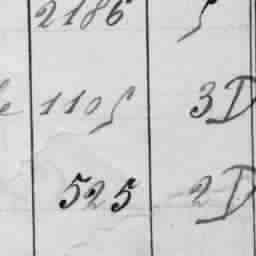 2186 5
le 1105 3D
525 2D